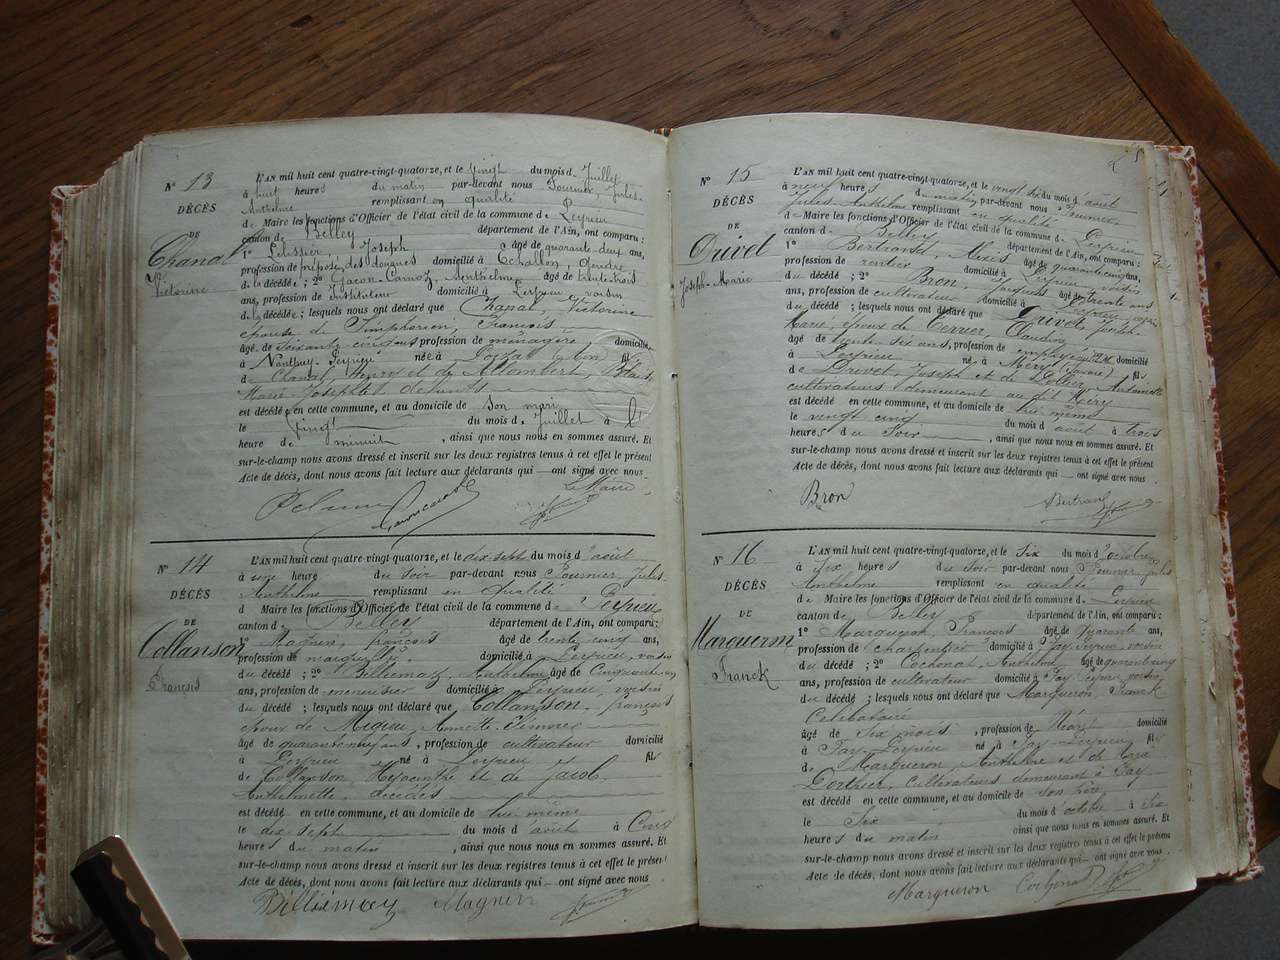 N° 13
DÉCÈS
DE
Chanal
Victorine
L'AN mil huit cent quatre-vingt-quatorze, et le vingt du mois de Juillet
à huit heures du matin par-devant nous Fournier, Jules-
Anthelme remplissant en qualité
de Maire les fonctions d'Officier de l'état civil de la commune de Peyrieu
canton de Belley département de l'Ain, ont comparu :
1° Joseph âgé de quarante deux ans,
profession de préposé des douanes domicilié à Echallon, gendre
de la décédée ; 2° Gacon-Camoz, Anthelme âgé de trente-trois
ans, profession de Instituteur domicilié à Peyrieu voisin
de la décédée ; lesquels nous ont déclaré que Chanal, Victorine
épouse de Simphorien, François
âgé de soixante cinq ans profession de ménagère domicilié
à née à fil
de Chanal, Henry et de Allombert,
Marie Josephte défunts
est décédé en cette commune, et au domicile de son mari
le vingt du mois de Juillet à
heure de minuit , ainsi que nous nous en sommes assuré. Et
sur-le-champ nous avons dressé et inscrit sur les deux registres tenus à cet effet le présent
Acte de décès, dont nous avons fait lecture aux déclarants qui ont signé avec nous
Le Maire
N° 14
DÉCÈS
DE
Collanson
François
L'AN mil huit cent quatre-vingt-quatorze, et le dix sept du mois d'août
à une heure du soir par-devant nous Fournier Jules
Anthelme remplissant en qualité
de Maire les fonctions d'Officier de l'état civil de la commune de Peyrieu
canton de Belley département de l'Ain, ont comparu :
1° Magnin, François âgé de trente cinq ans,
profession de domicilié à Peyrieu, voisin
du décédé ; 2° Billiemaz, Anthelme âgé de
ans, profession de menuisier domicilié à Peyrieu, voisin
du décédé ; lesquels nous ont déclaré que Collanson, françois
époux de Annette
âgé de quarante neuf ans, profession de cultivateur domicilié
à Peyrieu né à Peyrieu fils
de Collanson, Hyacinthe et de Jacob,
Anthelmette, décédés
est décédé en cette commune, et au domicile de lui même
le dix sept du mois d'août à Cinq
heures du matin , ainsi que nous nous en sommes assuré. Et
sur-le-champ nous avons dressé et inscrit sur les deux registres tenus à cet effet le présent
Acte de décès, dont nous avons fait lecture aux déclarants qui ont signé avec nous
Billiemaz Magnin
N° 15
DÉCÈS
DE
Drivet
Joseph-Marie
L'AN mil huit cent quatre-vingt-quatorze, et le vingt six du mois d'août
à neuf heures du matin par-devant nous Fournier
Jules Anthelme remplissant en qualité
de Maire les fonctions d'Officier de l'état civil de la commune de Peyrieu
canton de Belley département de l'Ain, ont comparu :
1° Bertrand, Alexis âgé de quarante cinq ans,
profession de rentier domicilié à Peyrieu, voisin
du décédé ; 2° Bron, Jacques âgé de trente
ans, profession de cultivateur domicilié à Peyrieu, voisin
du décédé ; lesquels nous ont déclaré que Drivet, Joseph
Marie, époux de Terrier, Claudine
âgé de trente six ans, profession de employé au P.L.M. domicilié
à Peyrieu né à Méry (Savoie) fils
de Drivet, Joseph et de Antoinette
cultivateurs demeurant au dit Méry
est décédé en cette commune, et au domicile de lui même
le vingt cinq du mois d'août à trois
heures du soir , ainsi que nous nous en sommes assuré. Et
sur-le-champ nous avons dressé et inscrit sur les deux registres tenus à cet effet le présent
Acte de décès, dont nous avons fait lecture aux déclarants qui ont signé avec nous
Bron Bertrand
N° 16
DÉCÈS
DE
Marqueron
Franck
L'AN mil huit cent quatre-vingt-quatorze, et le six du mois d'octobre
à six heures du soir par-devant nous Fournier Jules
Anthelme remplissant en qualité
de Maire les fonctions d'Officier de l'état civil de la commune de Peyrieu
canton de Belley département de l'Ain, ont comparu :
1° Marqueron, François âgé de quarante ans,
profession de charpentier domicilié à Fay Peyrieu voisin
du décédé ; 2° Cochonat, Anthelme âgé de quarante cinq
ans, profession de cultivateur domicilié à Fay Peyrieu, voisin
du décédé ; lesquels nous ont déclaré que Marqueron, Franck
Célibataire
âgé de six mois , profession de Néant domicilié
à Fay-Peyrieu né à Fay-Peyrieu fils
de Marqueron, Anthelme et de Marie
Gonthier, cultivateurs demeurant à Fay
est décédé en cette commune, et au domicile de son père
le Six du mois d'octobre à six
heures du matin ainsi que nous nous en sommes assuré. Et
sur-le-champ nous avons dressé et inscrit sur les deux registres tenus à cet effet le présent
Acte de décès, dont nous avons fait lecture aux déclarants qui ont signé avec nous
Marqueron Cochonat